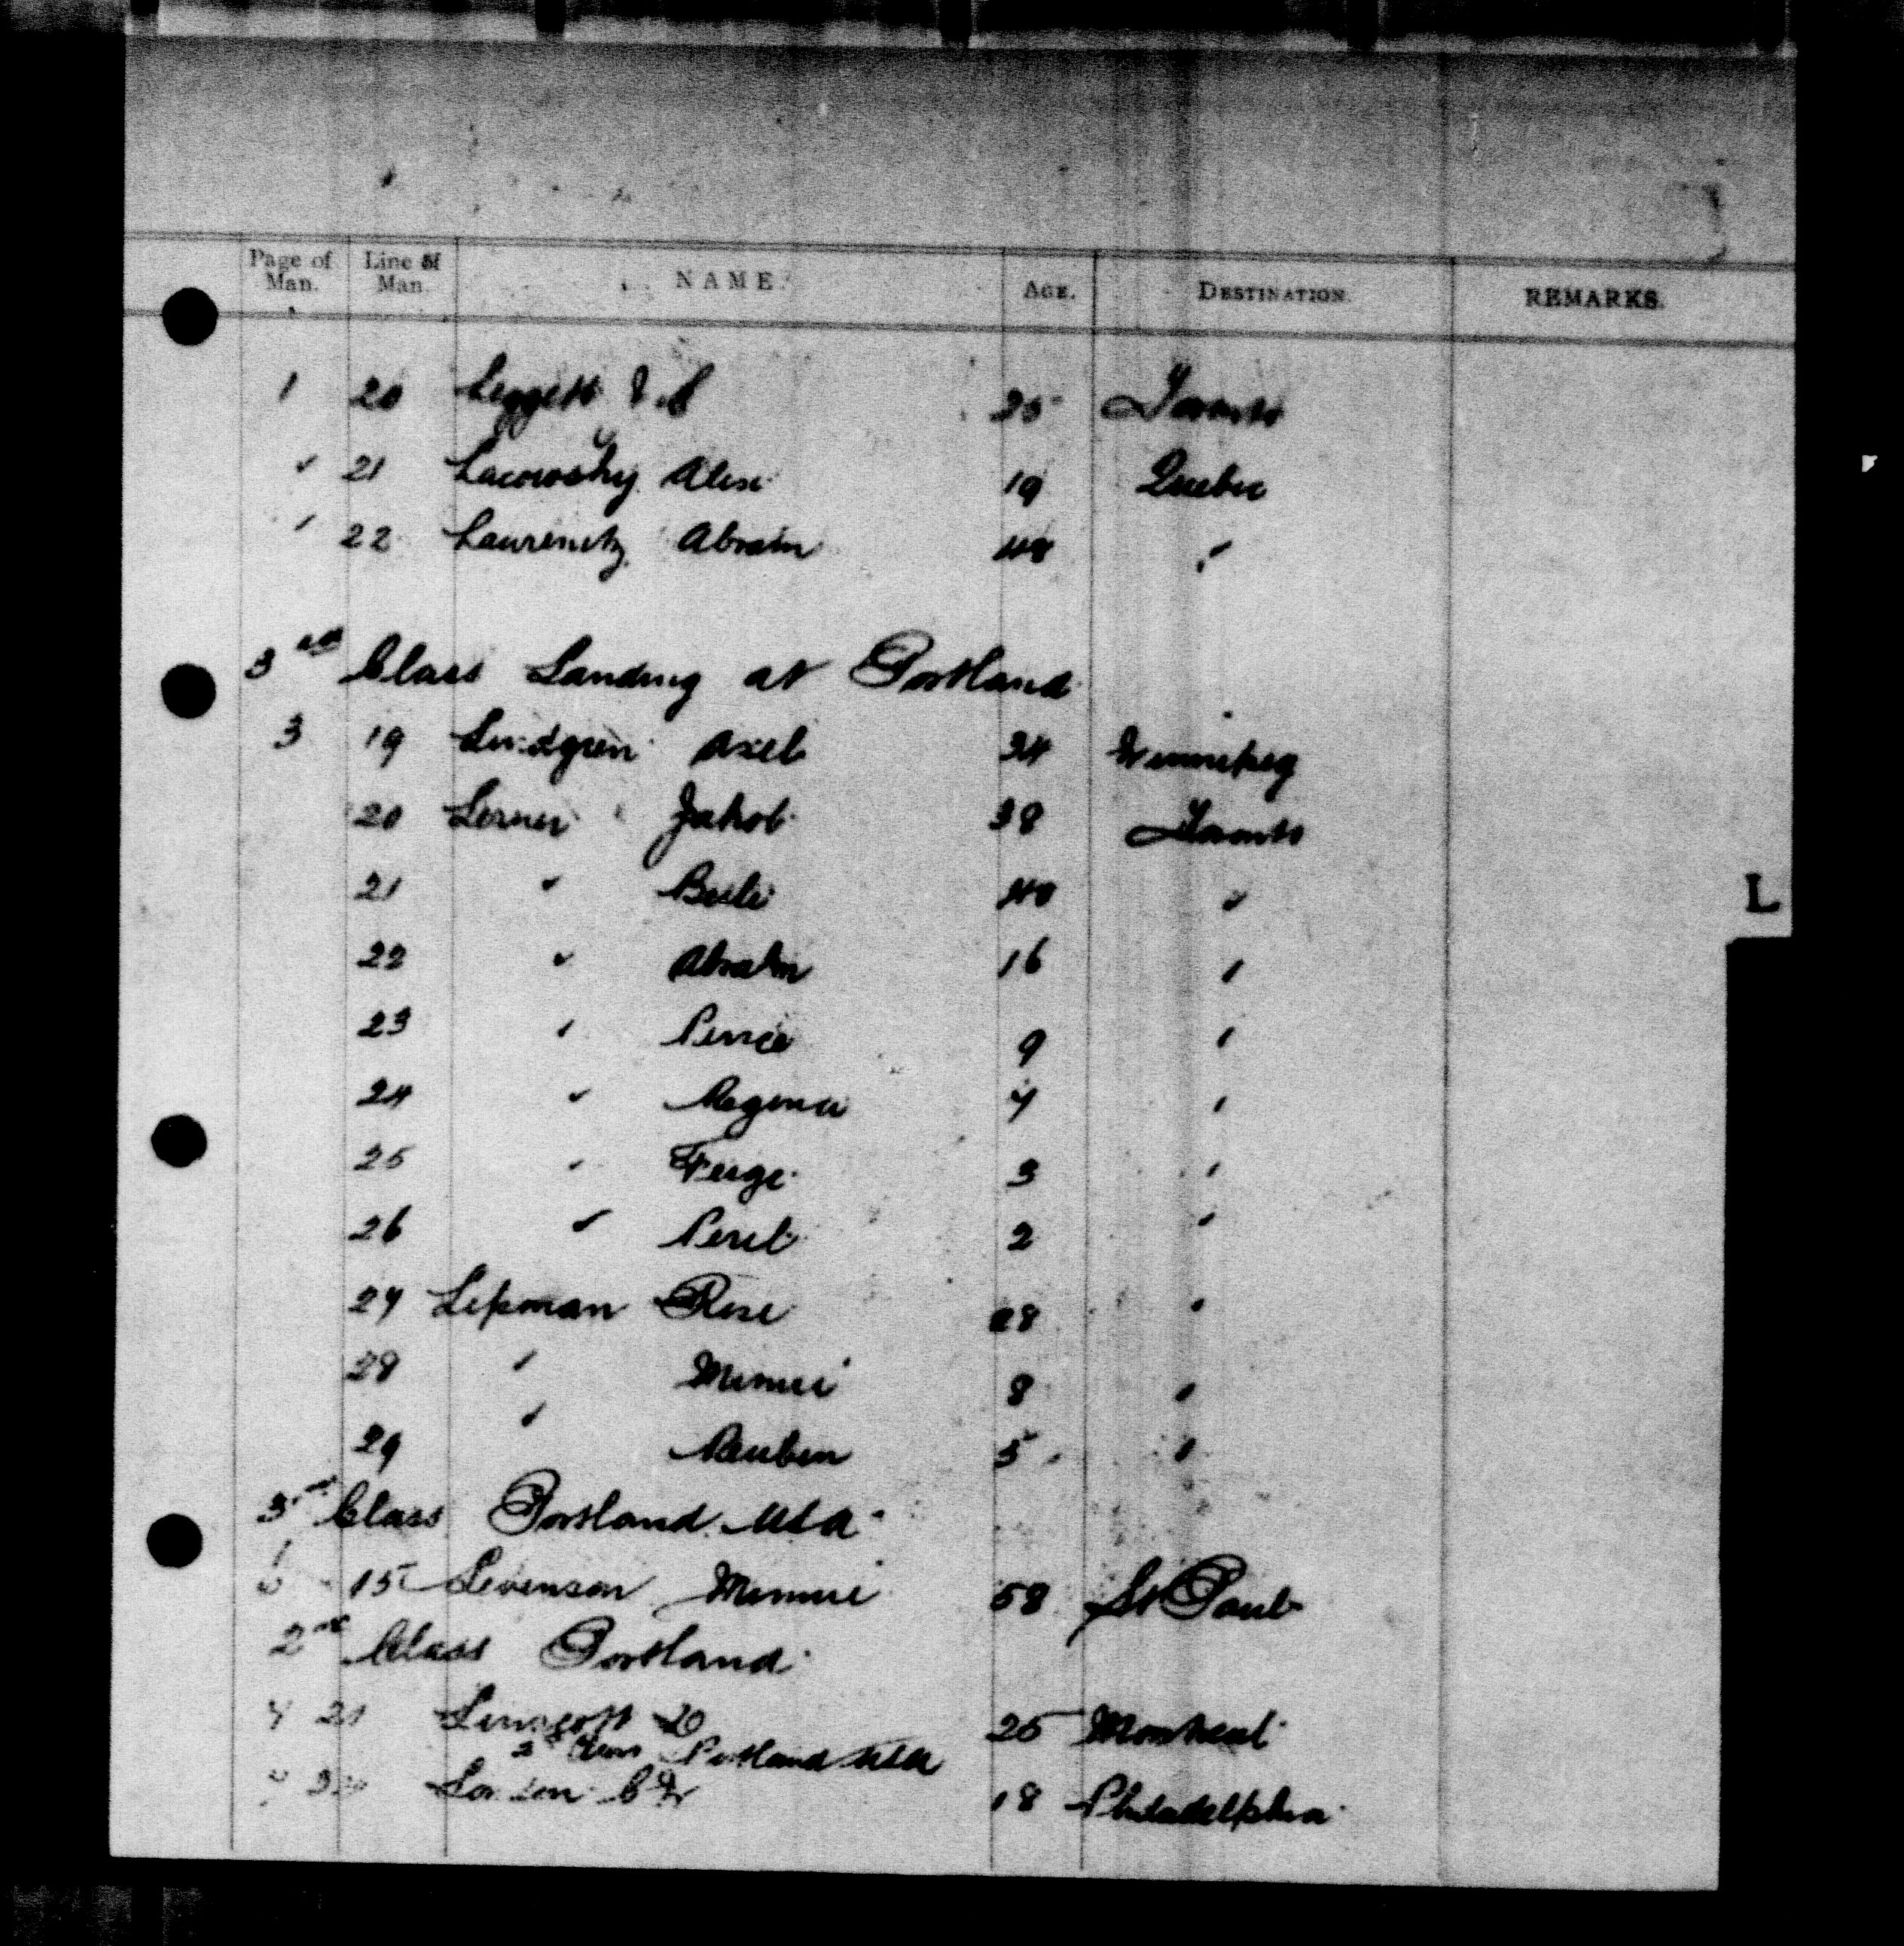 Page of Man. Line of Man. NAME. AGE. DESTINATION. REMARKS.
1 20 Leggett 25 Toronto
" 21 Lacowsky Alex 19 Quebec
" 22 Laurenitz Abram 48 "
3rd Class Landing at Portland
3 19 Lindgren Axel 24 Winnipeg
20 Lerner Jakob 38 Toronto
21 " Beile 40 "
22 " Abrahm 16 "
23 " 9 "
24 " Regina 4 "
25 " Feige 3 "
26 " Perel 2 "
27 Lipman Rose 28 "
28 " Minnie 8 "
29 " Reuben 5 "
L
3rd Class Portland USA
15 Levenson Minnie 58 St Paul
2nd Class Portland
4 21 Linscott D 25 Montreal
2 Class Portland USA
18 Philadelphia